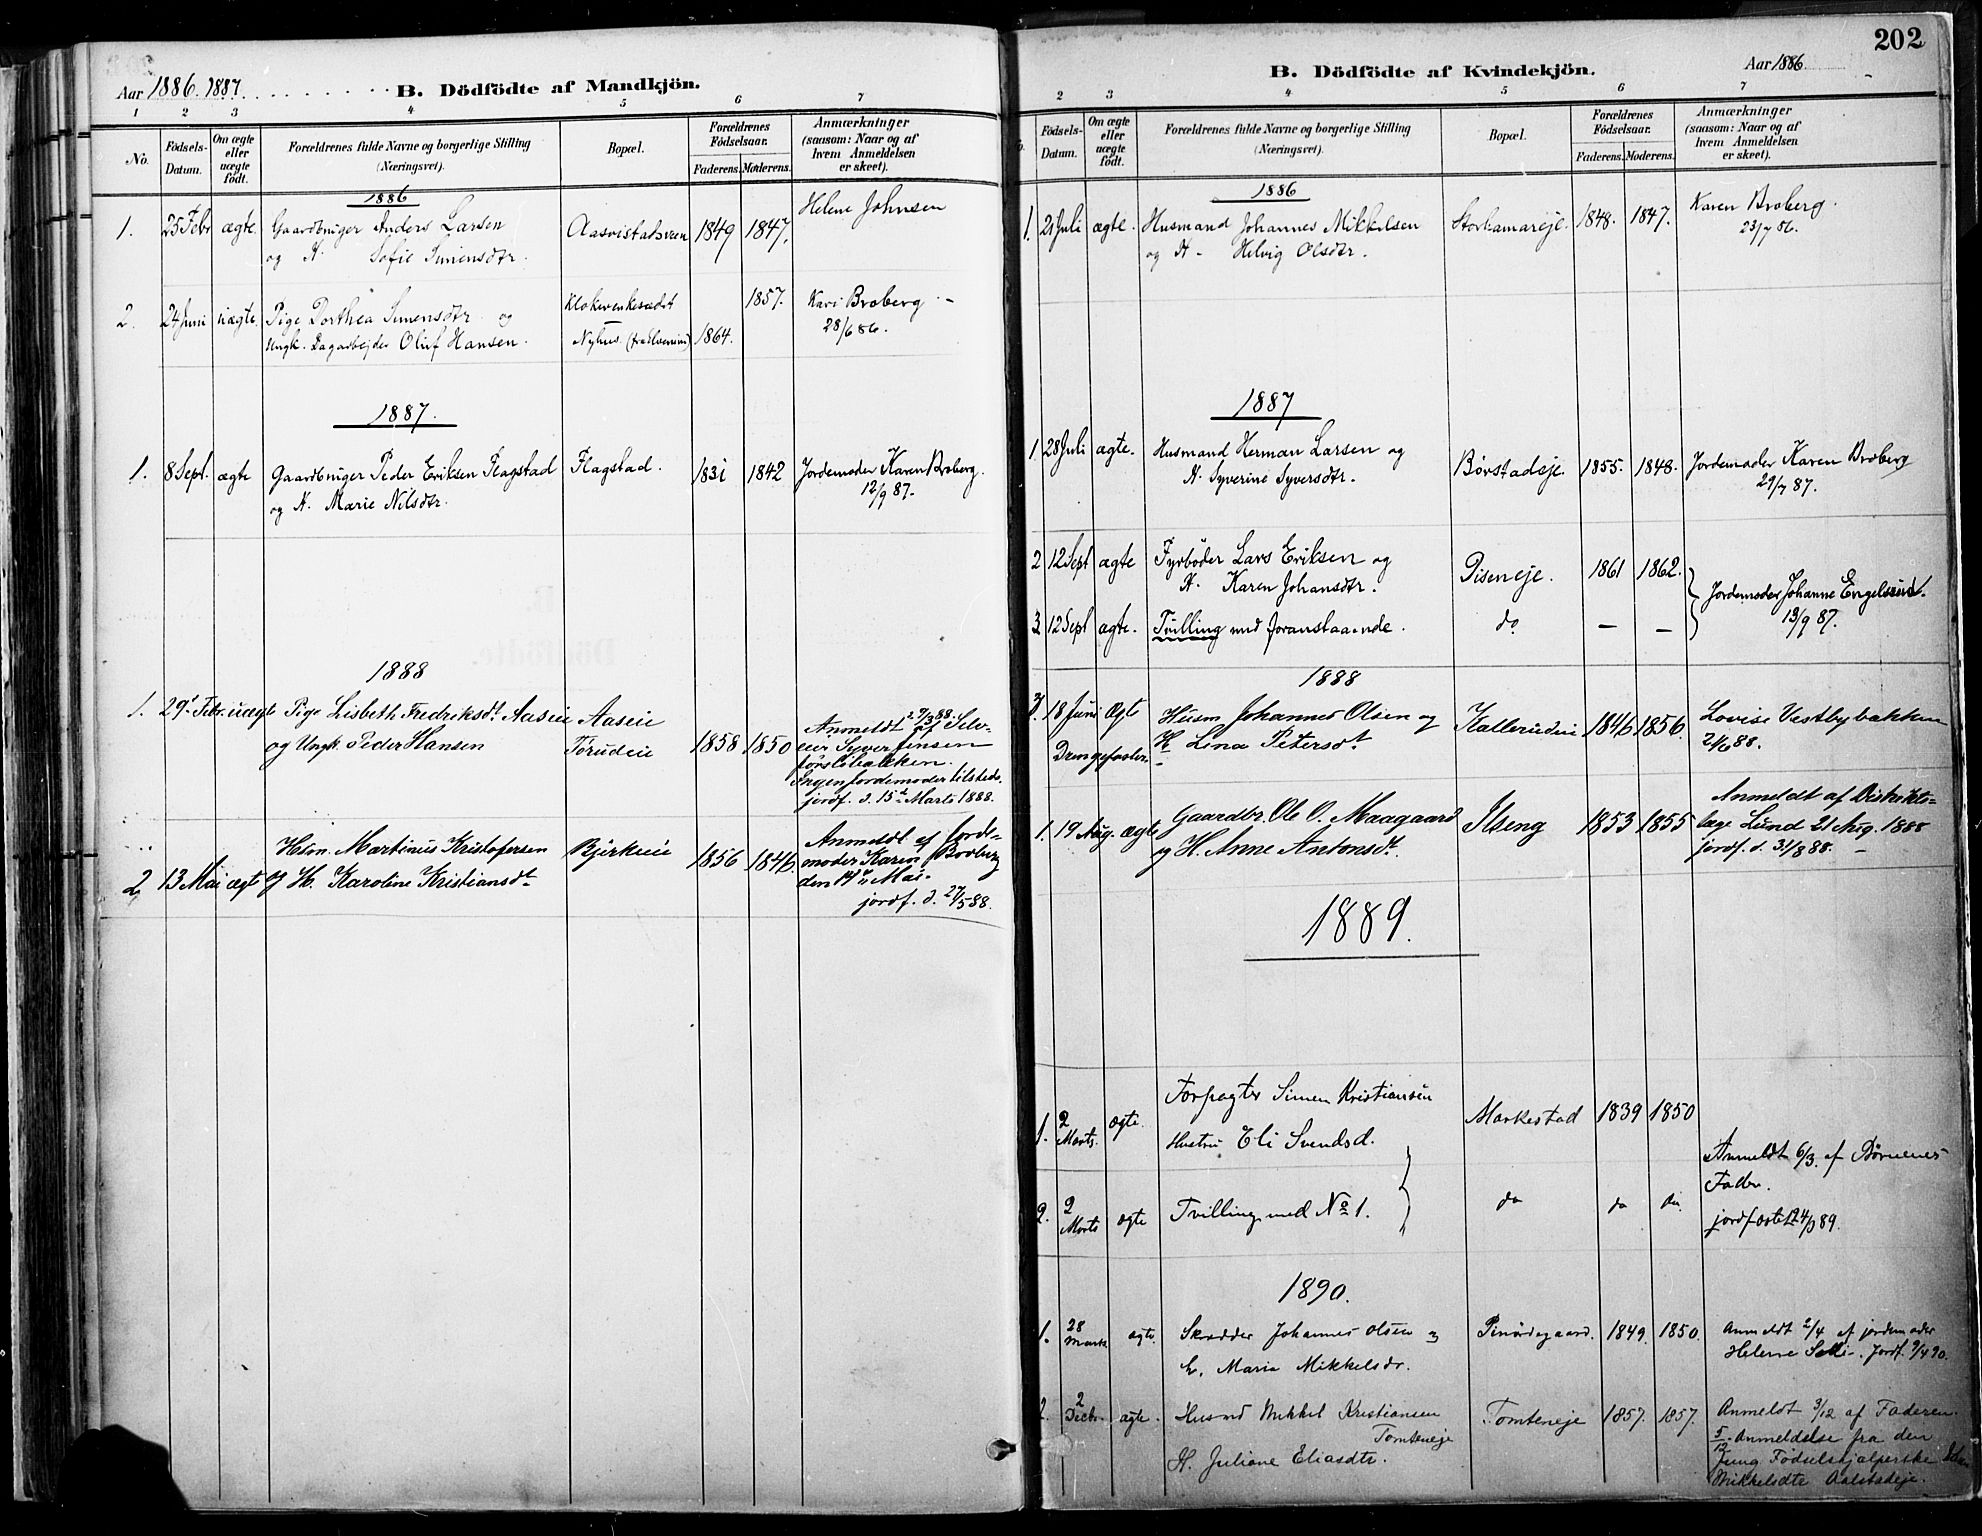 Aar 1886. 1887.
B. Dödfödte af Mandkjön.
1 2 3 4 5 6 7
No.
Födsels-Datum.
Om ægte eller uægte födt.
Forældrenes fulde Navne og borgerlige Stilling
(Næringsvei).
Bopæl.
Forældrenes Födselsaar.
Faderens. Moderens.
Anmærkninger
(saasom: Naar og af
hvem Anmeldelsen
er skeet).
1886
1. 25 Febr ægte. Gaardbruger Anders Larsen 1849 1847. Helene Johnsen
og H. Sofie Simensdtr.
2. 24 Juni uægte. Pige Dorthea Simensdtr. og 1857. Kari Broberg
Ungk. Dagarbejder Oluf Hansen. Nyhus 1864. 28/6 86.
1887.
1. 8 Sept. ægte Gaardbruger Peder Eriksen Flagstad Flagstad. 1831 1842 Jordemoder Karen Broberg.
og H. Marie Nilsdtr. 12/9 87.
1888
1. 29 Febr. uægt Pige Lisbeth Fredriksdt. Aaseie Aaseie 1858 1850 Anmeldt 2/3 88 af Selv-
og Ungk. Peder Hansen Torudeie eier Syver Jensen
Ingen Jordemoder tilstede.
jordf. d. 15de Marts 1888.
2 13 Mai ægt Hsm. Martinus Kristofersen Bjerkeie 1856 1846. Anmeldt af Jorde-
og H. Karoline Kristiansdt moder Karen Broberg
den 14de Mai.
jordf. d. 27/5 88.
202
Aar 1886
B. Dödfödte af Kvindekjön.
2 3 4 5 6 7
Födsels-Datum.
Om ægte eller uægte födt.
Forældrenes fulde Navne og borgerlige Stilling
(Næringsvei).
Bopæl.
Forældrenes Födselsaar.
Faderens. Moderens.
Anmærkninger
(saasom: Naar og af
hvem Anmeldelsen
er skeet).
1886
1. 21 Juli ægte. Husmand Johannes Mikkelsen Storhamareje. 1848. 1847. Karen Broberg.
og H. Helvig Olsdtr. 23/7 86.
1887
1 28 Juli ægte. Husmand Herman Larsen og Børstadeje 1855. 1848. Jordemoder Karen Broberg
H. Syverine Syversdtr. 29/7 87.
2 12 Sept ægte Fyrbøder Lars Eriksen og Diseneje. 1861 1862.
H. Karen Johansdtr. Jordemoder Johanne Engelsrud.
3 12 Sept ægte. Tvilling med foranstaaende. do — — 13/9 87.
1888
18 Juni Ægt Husm Johannes Olsen og Kallerudeie 1846 1856. Lovise Vestbybakken
Drengefoster. H. Lina Petersdt 21/6 88.
1. 19 Aug. ægte Gaardbr. Ole O. Maagaard Ilseng 1853 1855 Anmeldt af Distrikts-
og H. Anne Antonsdt. læge Lund 21 Aug. 1888
jordf. d. 31/8 88.
1889.
1. 2 Marts. ægte. Forpagter Simen Kristiansen Markestad 1839 1850
Hustru Eli Svendsd.
Anmeldt 6/3. af Børnenes
Fader.
2. 2 Marts ægte Tvilling med No 1. do do do
1890.
1. 28 Marts ægte Skrædder Johannes Olsen og 1849. 1850. Anmeldt 2/4 af jordemoder
h. Marie Mikkelsdr. Helene Jordf. 9/4 90.
2. 2 Decbr. ægte. Husmd Mikkel Kristiansen Tomteneje 1857. 1857. Anmeldt 3/12 af Faderen.
Tomteneje 5/12. Anmeldelse fra den
H. Juliane Eliasdtr. Fødselshjælperske
Mikkelsdtr